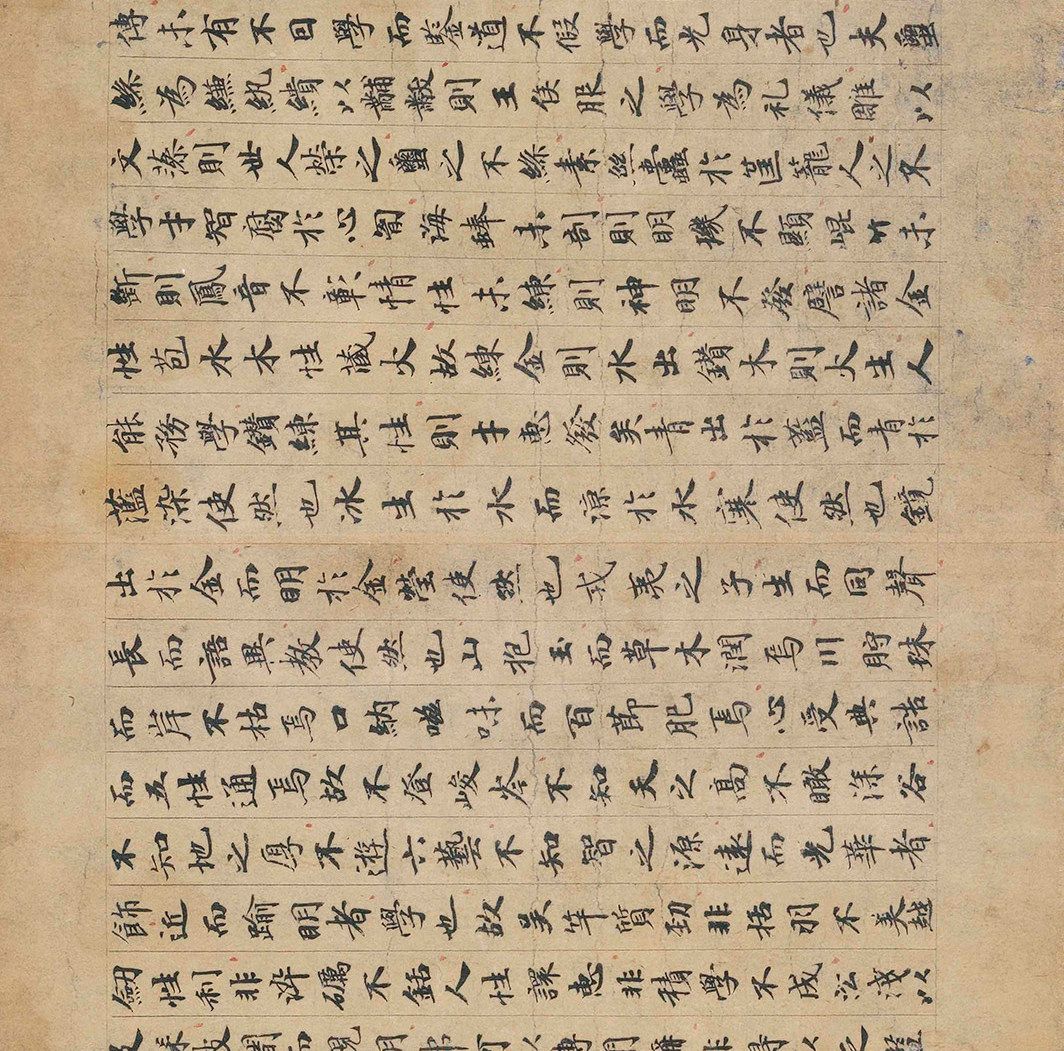 傳未有不因學而鑒道不假學而光身者也夫璽
絲為縑紈繢以黼黻則王侯服之學為礼儀雕以
文藻則世人榮之璽之不絲素絲蠹於筐籠人之不
學才智腐於心胷海蜯未剖則明璣不顯崐竹未
斷則鳳音不彰情性未練則神明不發譬諸金
性苞水木性藏火故練金則水出鑽木則火生人
能務學鑽練其性則才惠發矣青出於藍而青於
藍染使然也冰生於水而涼於水寒使然也鏡
出於金而明於金瑩使然也戎夷之子生而同聲
長而語異教使然也山抱玉而草木潤焉川貯珠
而岸不枯焉口納滋味而百節肥焉心受典誥
而五性通焉故不登峻岑不知天之高不瞰深谷
不知地之厚不遊六藝不知智之源遠而光華者
飾近而踰明者學也故吳竿質勁非栝羽不美越
劒性利非淬礪不銛人性譞惠非積學不成沿淺以